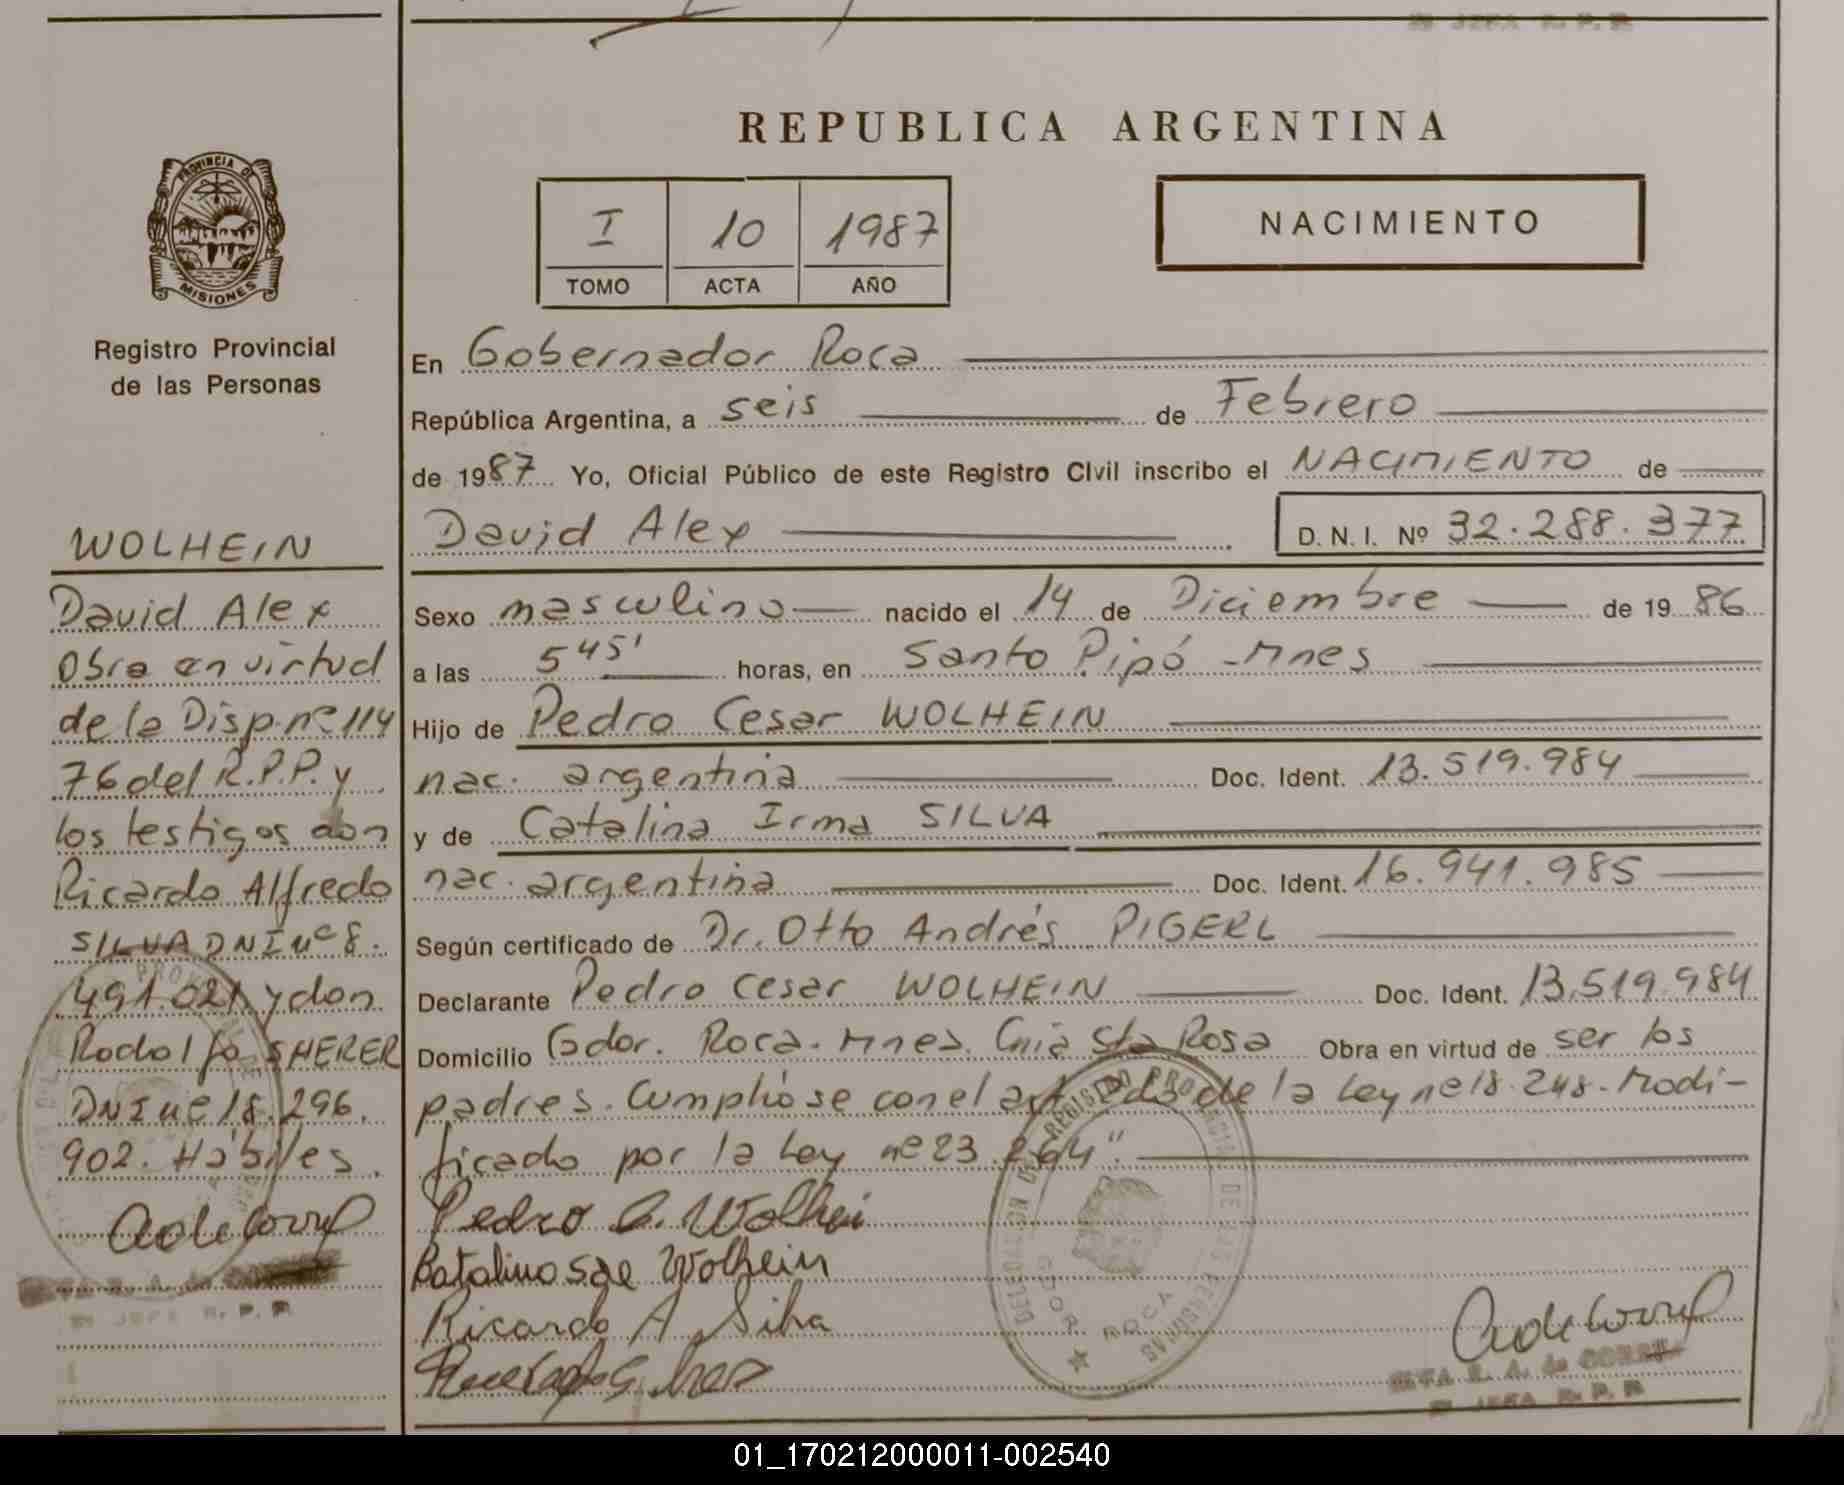 REPUBLICA ARGENTINA
I 10 1987
TOMO ACTA AÑO
NACIMIENTO
PROVINCIA DE
MISIONES
Registro Provincial
de las Personas
WOLHEIN
David Alex
Obra en virtud
de la Disp. nº 114
76 del R.P.P. y
los testigos don
Ricardo Alfredo
SILVA DNI nº 8.
491.021 y don
Rodolfo SHERER
DNI nº 18.296.
902. Hábiles.
En Gobernador Roca
República Argentina, a seis de Febrero
de 1987 Yo, Oficial Público de este Registro Civil inscribo el NACIMIENTO de
David Alex D. N. I. Nº 32.288.377
Sexo masculino nacido el 14 de Diciembre de 19 86
a las 5 45' horas, en Santo Pipó - Mnes
Hijo de Pedro Cesar WOLHEIN
nac. argentina Doc. Ident. 13.519.984
y de Catalina Irma SILVA
nac. argentina Doc. Ident. 16.941.985
Según certificado de Dr. Otto Andrés PIGERL
Declarante Pedro Cesar WOLHEIN Doc. Ident. 13.519.984
Domicilio Gdor. Roca - Mnes. Cnia Sta Rosa Obra en virtud de ser los
padres. Cumplióse con el art de la Ley nº 18.248. Modi-
ficado por la Ley nº 23.264"
Pedro C. Wolhei
Catalina S de Wolhein
Ricardo A Silva
REGISTRO PROVINCIAL DE LAS PERSONAS
GDOR ROCA
R. A. de
JEFA R. P. P.
01_170212000011-002540